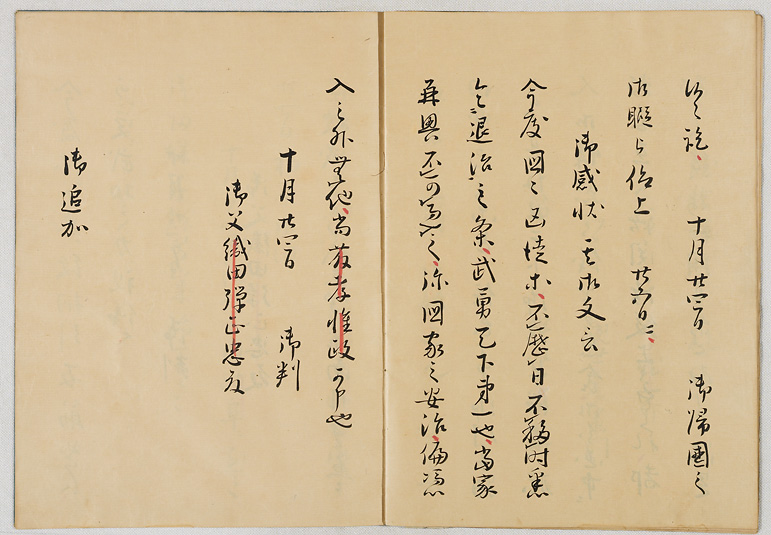 候訖、十月廿四日御帰国之
御暇被仰上廿五日ニ、
御感状其御文言
今度国々凶徒等、不歴日不移時悉
令退治之条、武勇天下第一也、当家
再興不可過之、弥国家之安治、偏憑
入之外無他、尚藤孝惟政可申也
十月廿四日 御判
御父織田弾正忠殿
御追加